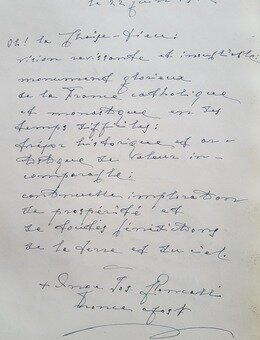 le 22 juin
Oh! la Chaise-Dieu:
vision ravissante et inoubliable
monument glorieux
de la France catholique
et monastique en des
temps difficiles:
trésor historique et ar-
tistique de valeur in-
comparable:
continuelle imploration
de prospérité et
de toutes bénédictions
de la terre et du ciel.
+ Ange Jos Roncalli
nonce apost